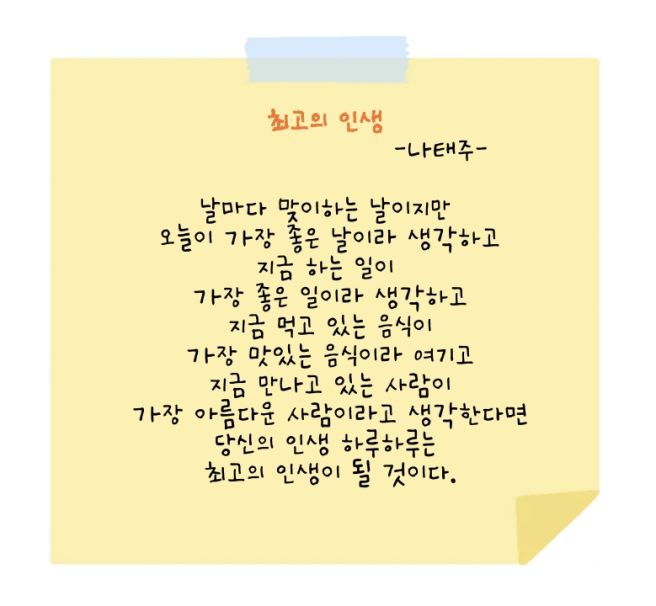 최고의 인생
-나태주-
날마다 맞이하는 날이지만
오늘이 가장 좋은 날이라 생각하고
지금 하는 일이
가장 좋은 일이라 생각하고
지금 먹고 있는 음식이
가장 맛있는 음식이라 여기고
지금 만나고 있는 사람이
가장 아름다운 사람이라고 생각한다면
당신의 인생 하루하루는
최고의 인생이 될 것이다.